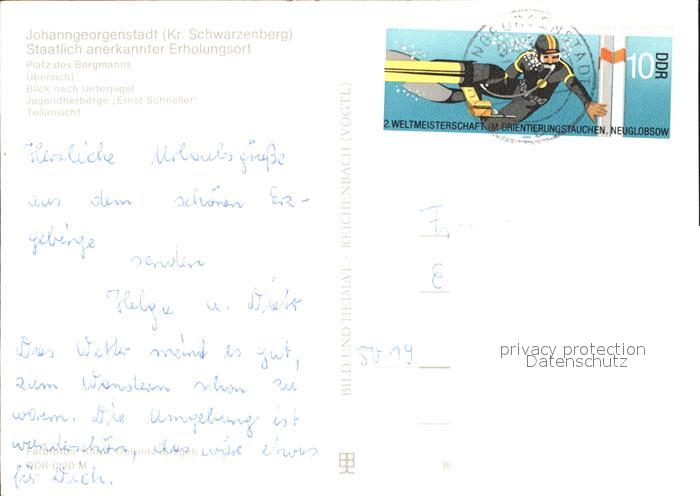 Johanngeorgenstadt (Kr. Schwarzenberg)
Staatlich anerkannter Erholungsort
Platz des Bergmanns
Übersicht
Blick nach Unterjugel
Jugendherberge „Ernst Schneller"
Teilansicht
Herzliche Urlaubsgrüße
aus dem schönen Erz-
gebirge
senden
Helga u. Dieter
Das Wetter meint es gut,
zum Wandern schon zu
warm. Die Umgebung ist
wunderschön, das wäre etwas
für Dich.
DDR 0,20 M
BILD UND HEIMAT · REICHENBACH (VOGTL)
III
10
DDR
2. WELTMEISTERSCHAFT IM ORIENTIERUNGSTAUCHEN, NEUGLOBSOW
Fr
E
5019
privacy protection
Datenschutz